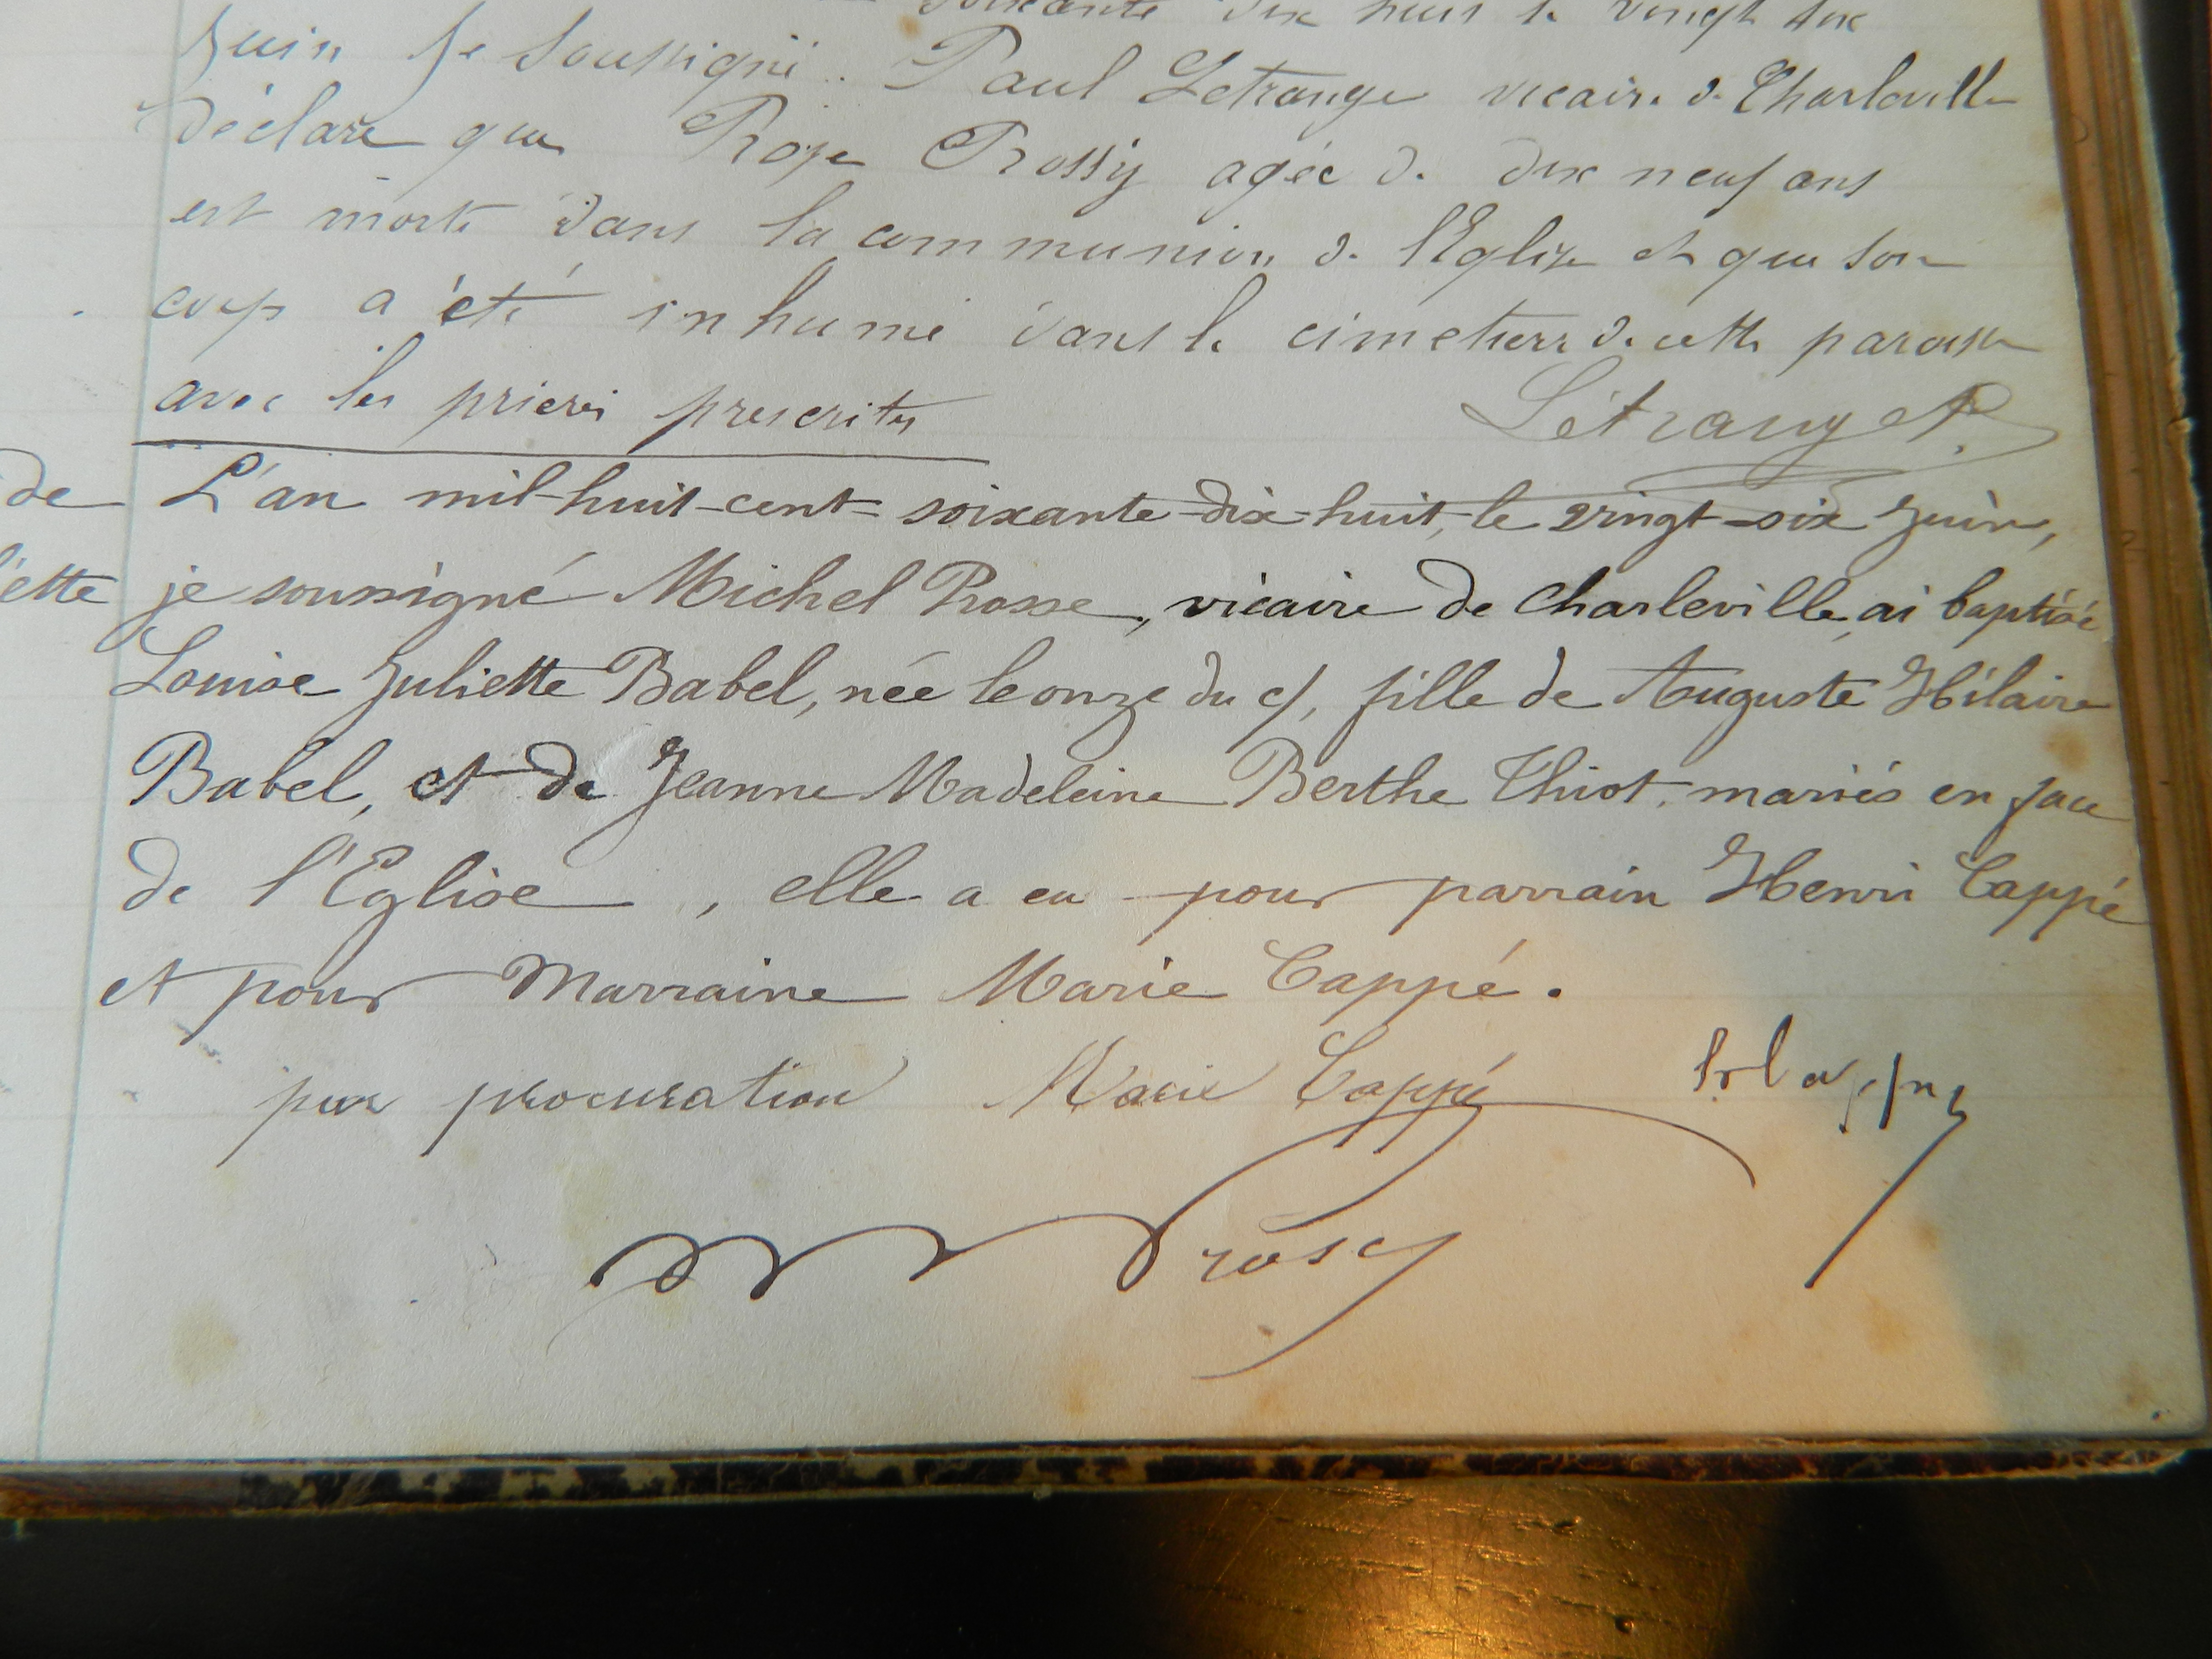 soixante dix huit le vingt six
Juin je soussigné Paul Letrange vicaire de Charleville
déclare que Rose Prossy agée de dix neuf ans
est morte dans la communion de l'Eglise et que son
corps a été inhumé dans le cimetierre de cette paroisse
avec les prieres prescrites
Létrange P.
de L'an mil-huit-cent-soixante-dix-huit, le vingt-six Juin,
je soussigné Michel Prosse, vicaire de Charleville, ai baptisé
Louise Juliette Babel, née le onze du c/, fille de Auguste Hilaire
Babel, et de Jeanne Madeleine Berthe Thiot, mariés en face
de l'Eglise, elle a eu pour parrain Henri Cappé
et pour Marraine Marie Cappé.
par procuration Marie Cappé